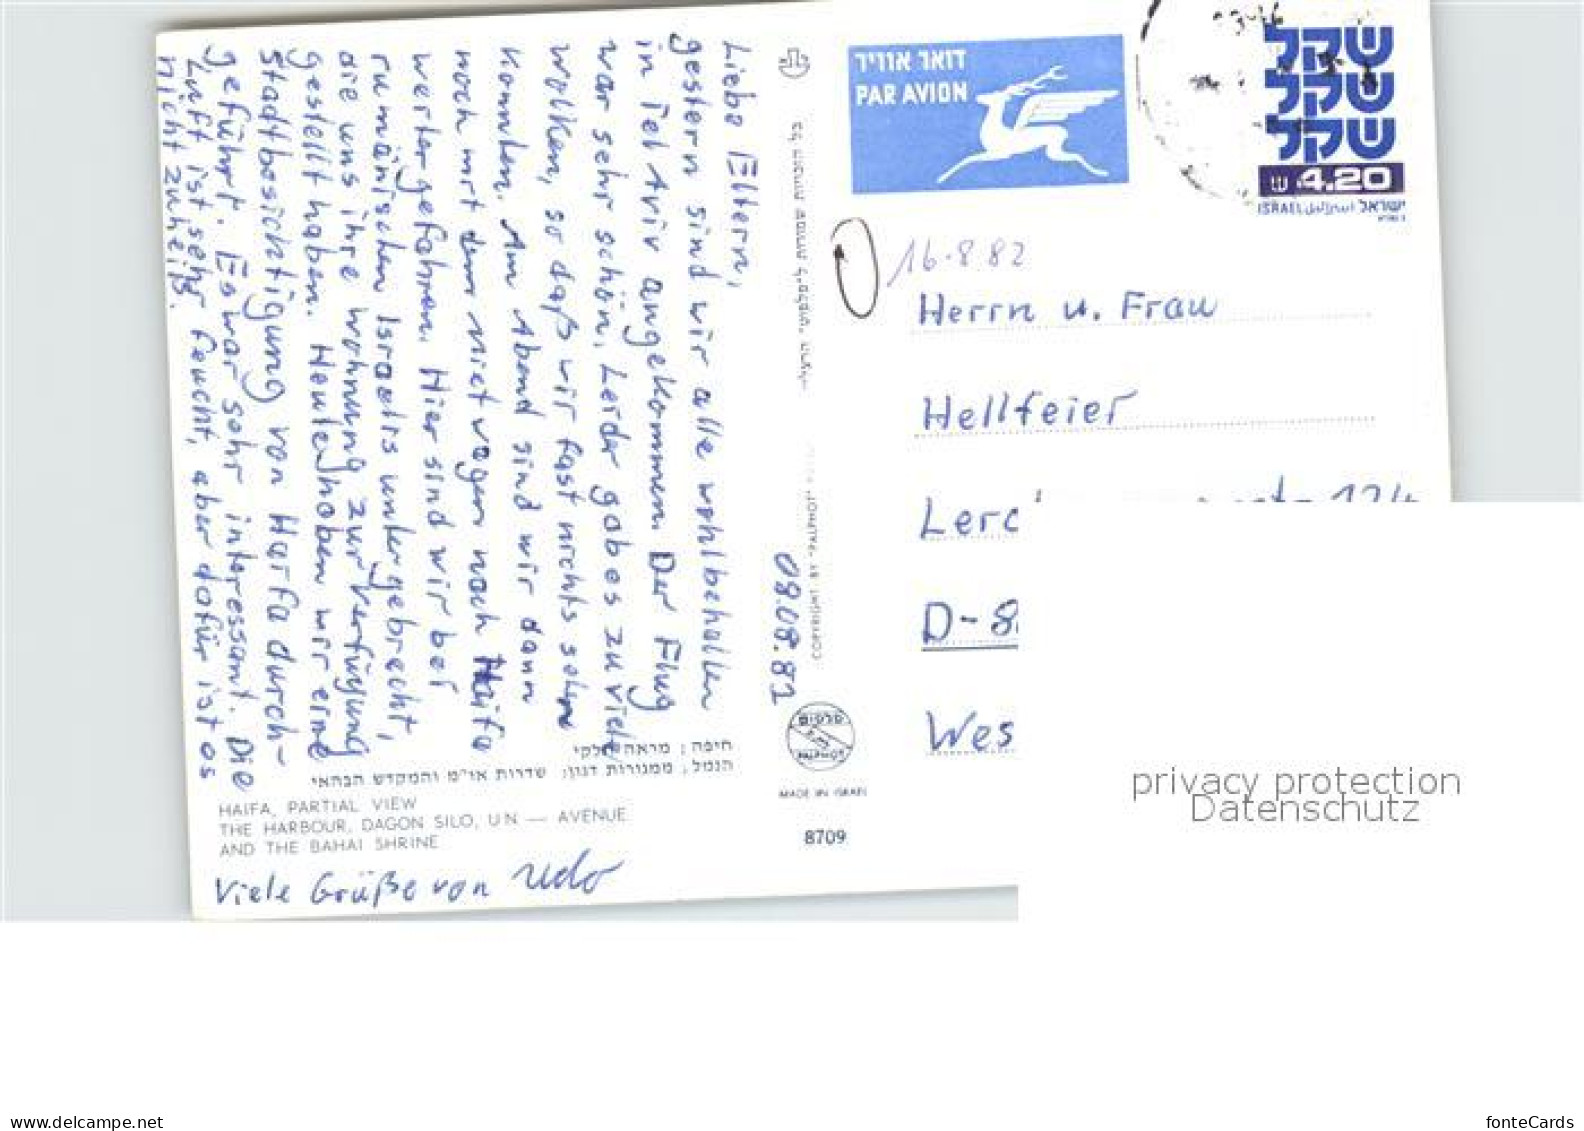 Liebe Eltern,
gestern sind wir alle wohlbehalten
in Tel Aviv angekommen. Der Flug
war sehr schön. Leider gab es zu viele
Wolken, so daß wir fast nichts sehen
konnten. Am Abend sind wir dann
noch mit dem Mietwagen nach Haifa
weitergefahren. Hier sind wir bei
rumänischen Israelis untergebracht,
die uns ihre Wohnung zur Verfügung
gestellt haben. Heute haben wir eine
Stadtbesichtigung von Haifa durch-
geführt. Es war sehr interessant. Die
Luft ist sehr feucht, aber dafür ist es
nicht zu heiß.
חיפה; מראה חלקי
הנמל; ממגורות דגון; שדרות או"מ והמקדש הבהאי
HAIFA, PARTIAL VIEW
THE HARBOUR, DAGON SILO, U N — AVENUE
AND THE BAHAI SHRINE
Viele Grüße von Udo
כל הזכויות שמורות ל"פלפוט"
COPYRIGHT BY "PALPHOT"
09.08.82
פלפוט
PALPHOT
MADE IN ISRAEL
8709
דואר אוויר
PAR AVION
שקל
שקל
שקל
4.20
ISRAEL اسرائيل ישראל
16.8.82
Herrn u. Frau
Hellfeier
Lerc
D-8
Wes
privacy protection
Datenschutz
www.oldthing.net
fonteCards